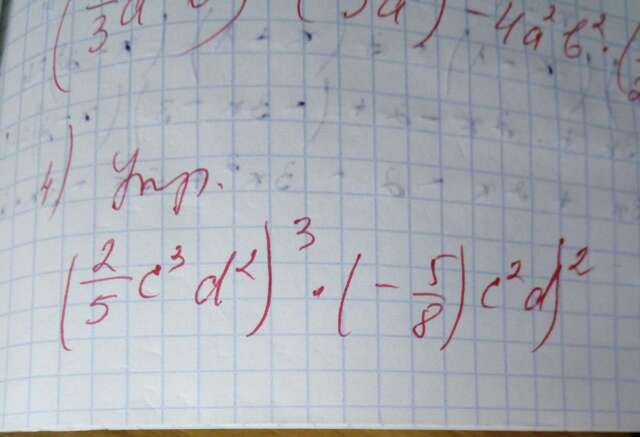 (1/3 a ) (3a) - 4a² b² · (
4) Упр.
(2/5 c³ d²)³ · (- 5/8) c² d)²